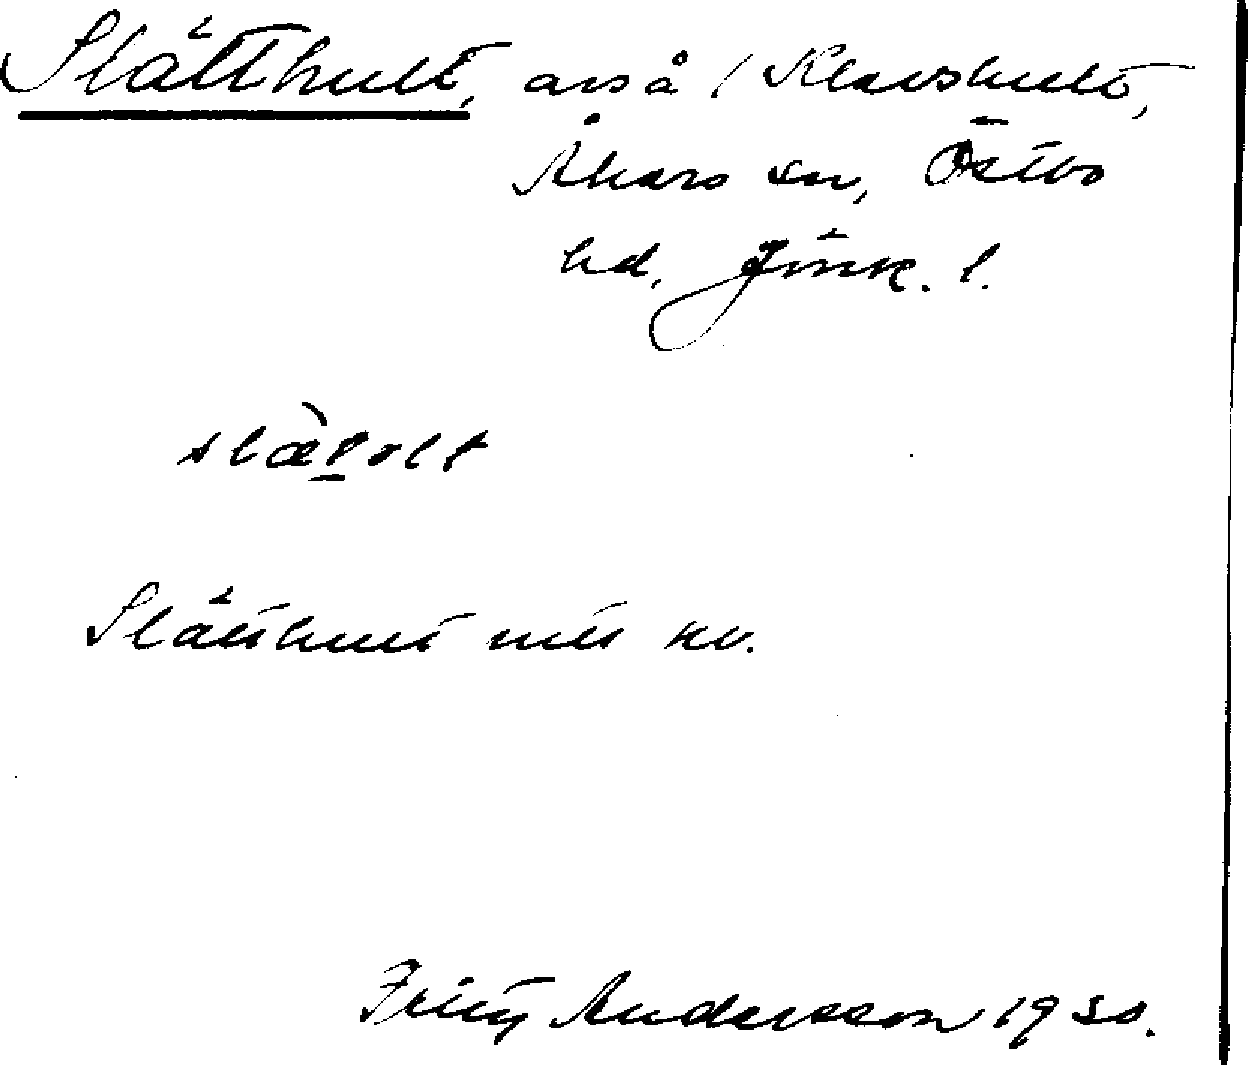 Slätthult, avs å Klarshult,
Åkers sn, Östbo
hd, Jönk. l.
Slätthult mtl kv.
Fritz Andersson 1930.